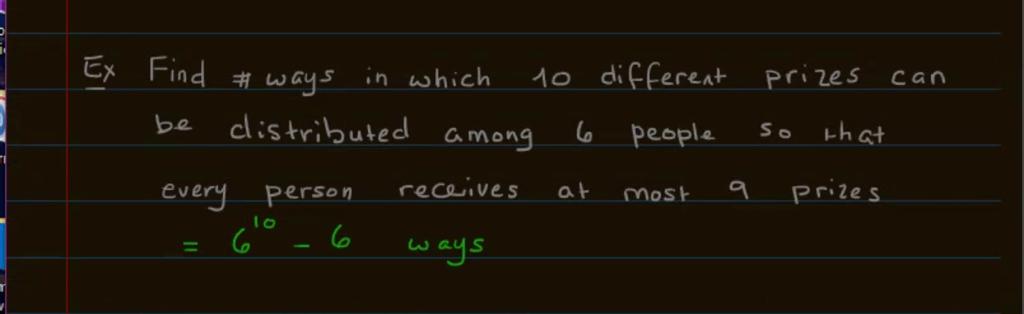 Ex Find # ways in which 10 different prizes can
be distributed among 6 people so that
every person receives at most 9 prizes
= 6^10 - 6 ways